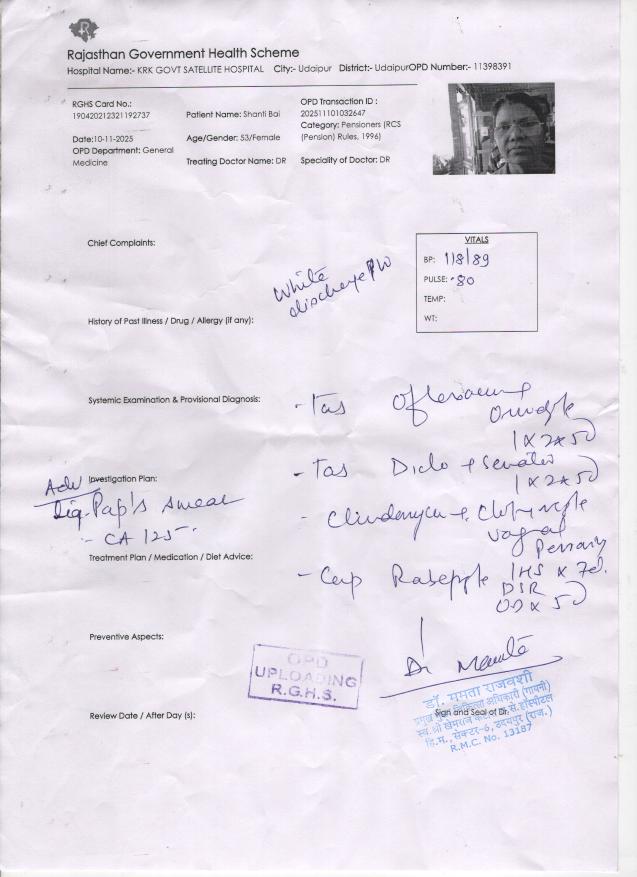 R
Rajasthan Government Health Scheme
Hospital Name:- KRK GOVT SATELLITE HOSPITAL City:- Udaipur District:- UdaipurOPD Number:- 11398391
RGHS Card No.:
190420212321192737
Date:10-11-2025
OPD Department: General
Medicine
Patient Name: Shanti Bai
Age/Gender: 53/Female
Treating Doctor Name: DR
OPD Transaction ID :
202511101032647
Category: Pensioners (RCS
(Pension) Rules, 1996)
Speciality of Doctor: DR
Chief Complaints:
White
discharge P/V
VITALS
BP: 118/89
PULSE: 80
TEMP:
WT:
History of Past Illness / Drug / Allergy (if any):
Systemic Examination & Provisional Diagnosis:
- Tab
1 x 2 x 5D
- Tab Diclo +
1 x 2 x 5D
Investigation Plan:
Adv
Pap's smear
- CA 125 -
- Clindamycin +
vaginal
Pessary
1HS x 7d.
Treatment Plan / Medication / Diet Advice:
- Cap DSR
OD x 5D
Preventive Aspects:
OPD
UPLOADING
R.G.H.S.
Dr Mamta
Review Date / After Day (s):
Sign and Seal of Dr.
डॉ. ममता राजवंशी
हि.म., सेक्टर-6, उदयपुर (राज.)
R.M.C. No. 13187